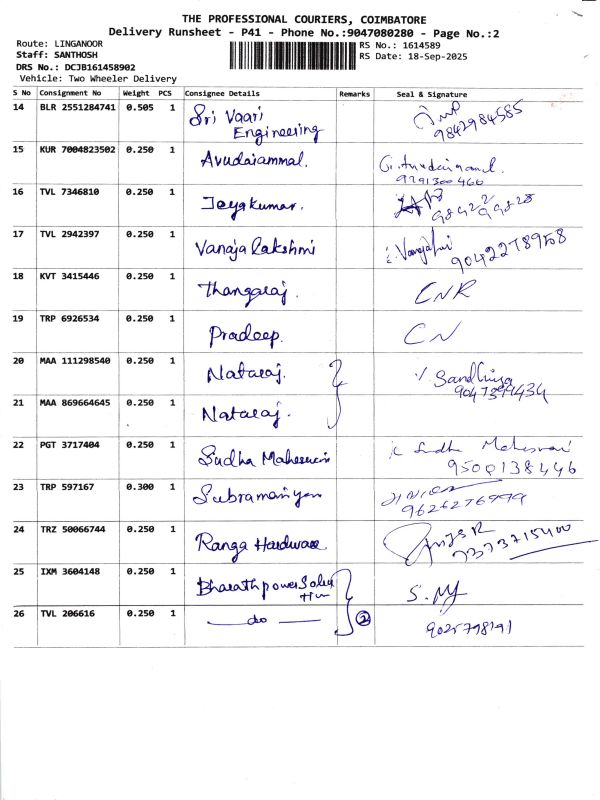 THE PROFESSIONAL COURIERS, COIMBATORE
Delivery Runsheet - P41 - Phone No.:9047080280 - Page No.:2
Route: LINGANOOR
Staff: SANTHOSH
DRS No.: DCJB161458902
Vehicle: Two Wheeler Delivery
RS No.: 1614589
RS Date: 18-Sep-2025
S No Consignment No Weight PCS Consignee Details Remarks Seal & Signature
14 BLR 2551284741 0.505 1 Sri Vaari
Engineering
9842984585
15 KUR 7004823502 0.250 1 Avudaiammal.
9291300466
16 TVL 7346810 0.250 1 Jeyakumar.
17 TVL 2942397 0.250 1 Vanaja Lakshmi
9042278958
18 KVT 3415446 0.250 1 Thangaraj. CNR
19 TRP 6926534 0.250 1 Pradeep. CN
20 MAA 111298540 0.250 1 Nataraj. Sandhiya
9047394434
21 MAA 869664645 0.250 1 Nataraj.
22 PGT 3717404 0.250 1 Sudha Maheswari Sudha Maheswari
9500138446
23 TRP 597167 0.300 1 Subramaniyan
9626276999
24 TRZ 50066744 0.250 1 Ranga Hardware
7373715400
25 IXM 3604148 0.250 1 Bharath power Solu
26 TVL 206616 0.250 1 — do — 2
9025798191